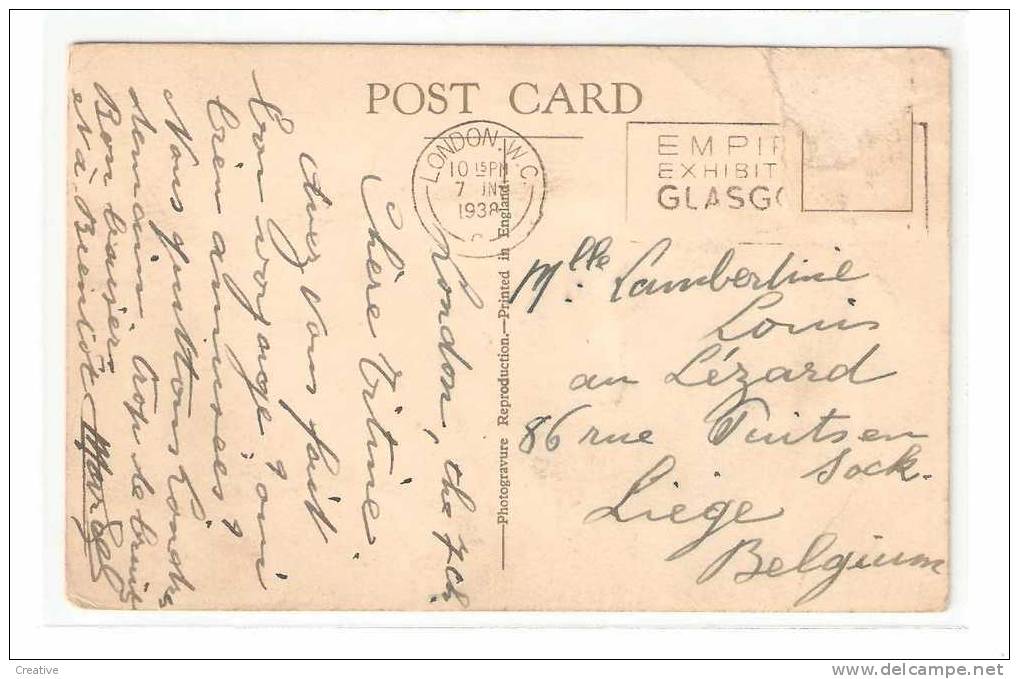 POST CARD
LONDON. W.C.
10 15 PM
7 JN
1938
C
EMPIR
EXHIBIT
GLASGO
Photogravure Reproduction.—Printed in England.
London, the 7th
Chère Titine
Avez vous fait
bon voyage? oui
bien amusées?
Nous quittons Londres
demain trop de bruit
Bon baisers
et à Bientôt Marcel
Mlle Lambertine
Louis
au Lézard
86 rue Puits en
Sock.
Liège
Belgium
Creative
www.delcampe.net